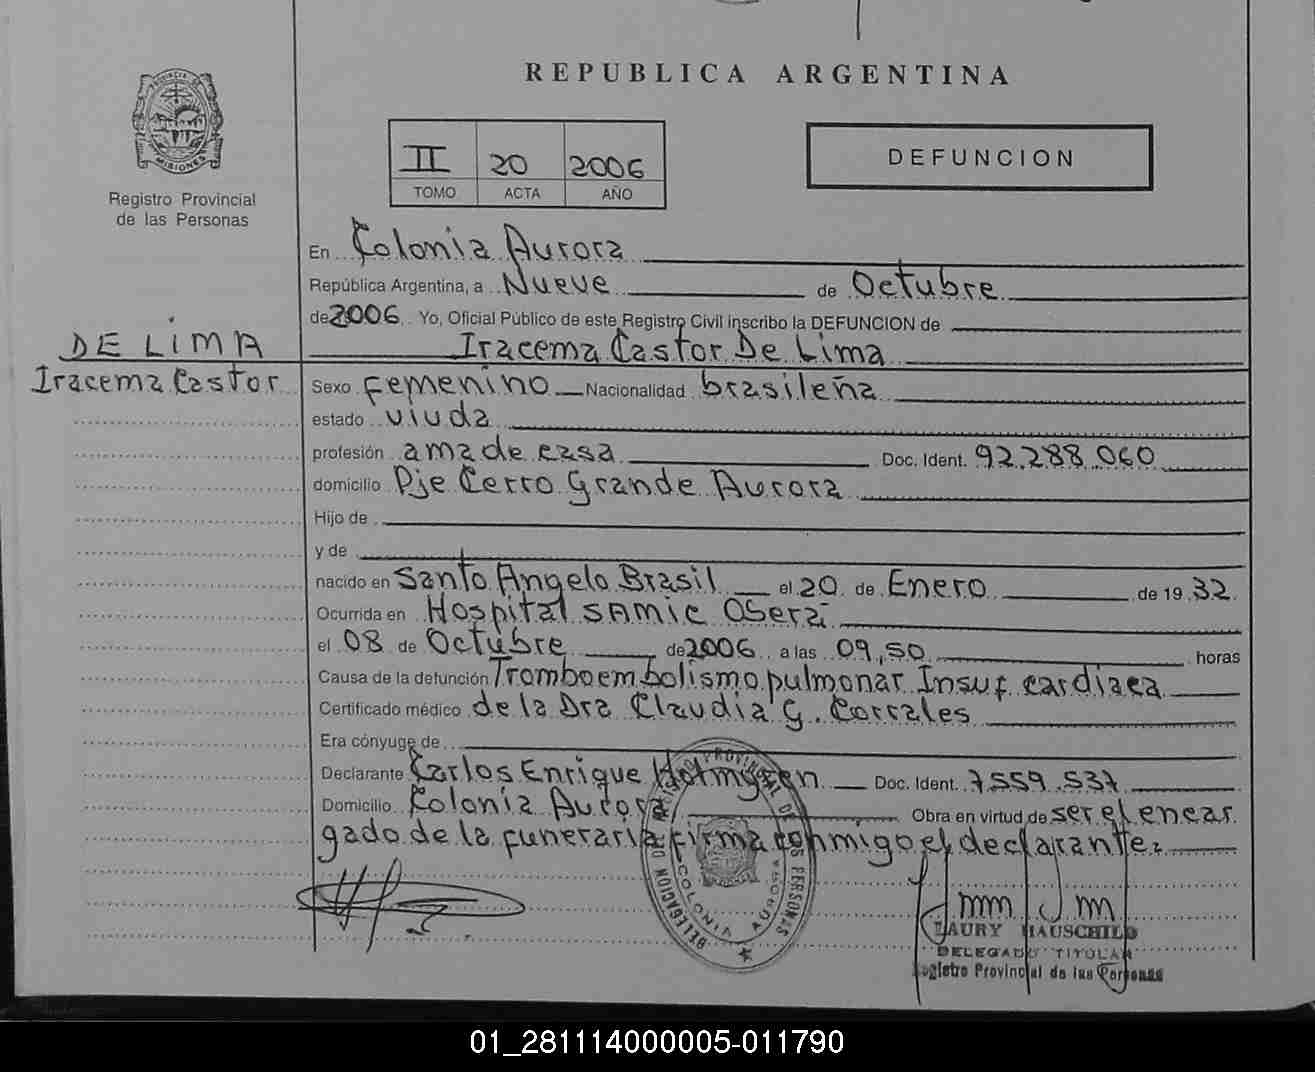 REPUBLICA ARGENTINA
PROVINCIA DE
MISIONES
Registro Provincial
de las Personas
II 20 2006
TOMO ACTA AÑO
DEFUNCION
En Colonia Aurora
República Argentina, a Nueve de Octubre
de 2006 Yo, Oficial Público de este Registro Civil inscribo la DEFUNCION de
DE LIMA
Iracema Castor De Lima
Iracema Castor
Sexo femenino Nacionalidad brasileña
estado viuda
profesión ama de casa Doc. Ident. 92.288.060
domicilio Pje Cerro Grande Aurora
Hijo de
y de
nacido en Santo Angelo Brasil el 20 de Enero de 19 32
Ocurrida en Hospital SAMIC Oberá
el 08 de Octubre de 2006 a las 09,50 horas
Causa de la defunción Tromboembolismo pulmonar Insuf cardíaca
Certificado médico de la Dra Claudia G. Corrales
Era cónyuge de
Declarante Carlos Enrique Doc. Ident. 7.559.537
Domicilio Colonia Aurora Obra en virtud de ser el encar
gado de la funeraria firma conmigo el declarante
DELEGACION DEL REGISTRO PROVINCIAL DE LAS PERSONAS
COLONIA AURORA
LAURY HAUSCHILD
DELEGADO TITULAR
Registro Provincial de las Personas
01_281114000005-011790